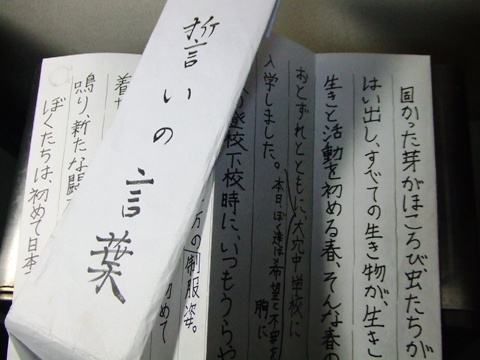 誓いの言葉
固かった芽がほころび、虫たちが
はい出し、すべての生き物が、生き
生きと活動を初める春、そんな春の
おとずれとともに、大穴中学校に
入学しました。本日、ぼく達は希望と不安を
胸に
登校下校時に、いつもうらや
制服姿。
初めて
着
鳴り、新たな闘
ぼくたちは、初めて日本